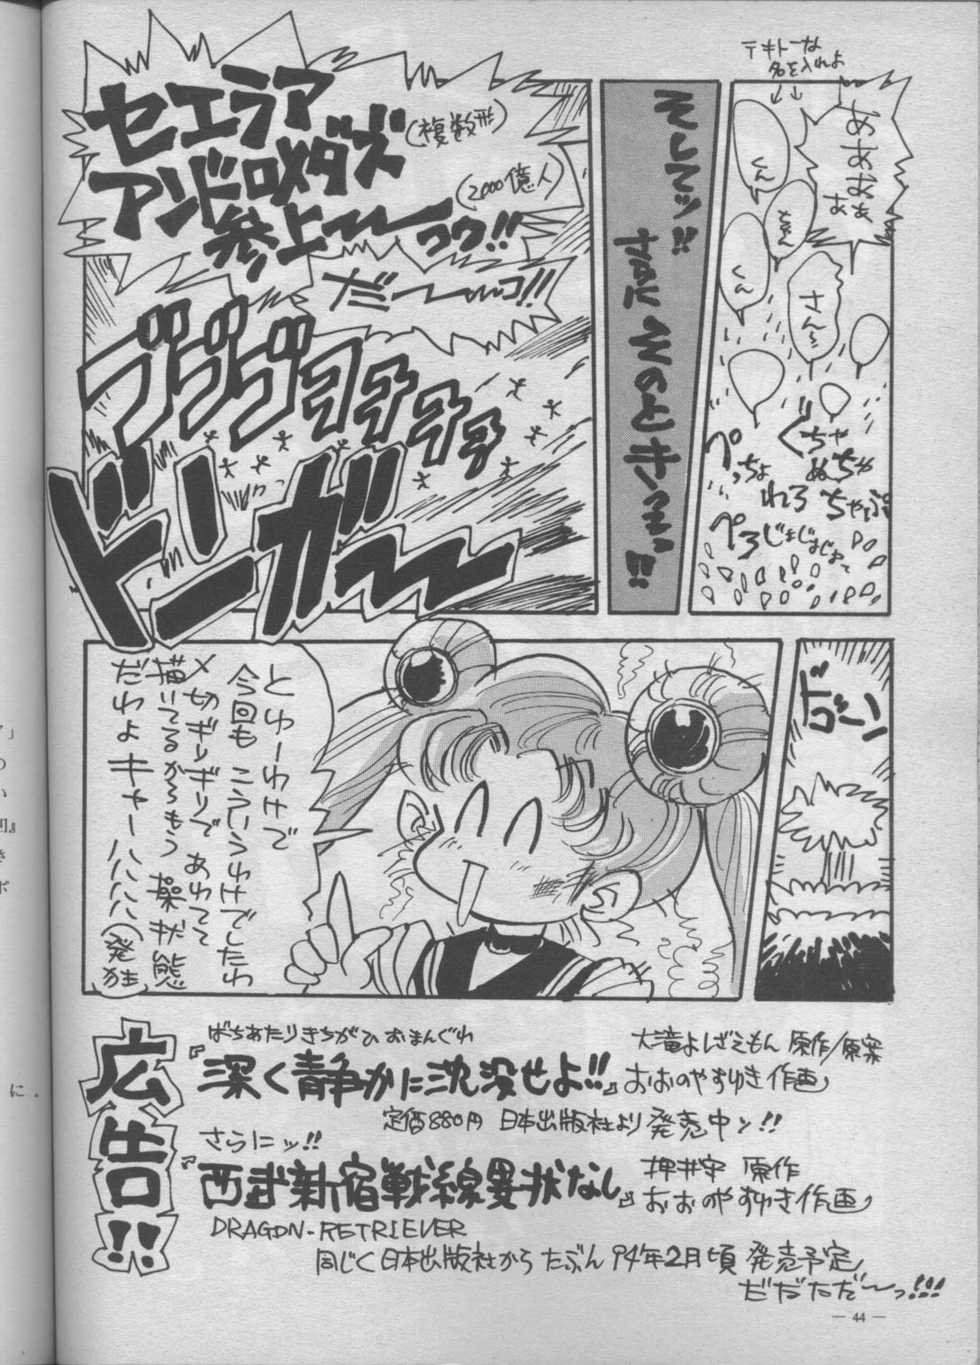 テキトーな
名を入れよ
↓↓
ああああ
くん
くん
さん
くちゃ
ぬちゃ
ぺっちょ
れろ
ちゃぷ
ぺろ
セエラア
アンドロメダズ
(複数形)
(2000億人)
参上〜〜っコウ!!
だ〜〜〜コ!!
ドンガ〜〜
ドゴーン
とゆーわけで
今回も こういうわけでしたわ
〆切ギリギリで あわてて
描いてるからもう 操状態
だわよ キャーハハハハ(発狂)
広告!!
ばちあたりきちがひ おまんぐわ
『深く静かに沈没せよ!!』
大滝よしざえもん 原作/原案
おおのやすゆき作画
定価880円 日本出版社より 発売中ッ!!
さらにッ!!
『西武新宿戦線異状なし』
押井守 原作
おおのやすゆき作画
DRAGON-RETRIEVER
同じく日本出版社から たぶん 94年2月頃 発売予定
だだだだ〜っ!!!
— 44 —